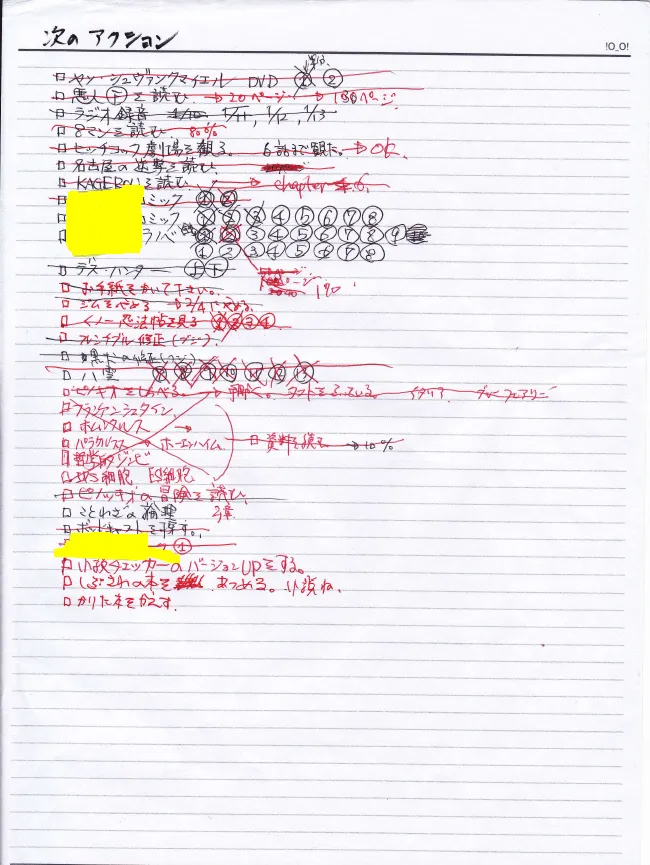 次のアクション
10_01
□ ヤン・シュヴァンクマイエル DVD ① ②
□ 悪人(下)を読む → 20ページ → 188ページ
□ ラジオ録音 1/10, 1/11, 1/12, 1/13
□ 8マンを読む 80%
□ ヒッチコック劇場を観る。 6話まで観た。→OK
□ 名古屋の逆襲を読む
□ KAGEROUを読む → chapter 6.
コミック ① ②
コミック ① ② ③ ④ ⑤ ⑥ ⑦ ⑧
ラノベ ① ② ③ ④ ⑤ ⑥ ⑦ ⑧ ⑨
① ② ③ ④ ⑤ ⑥ ⑦ ⑧
□ デス・ハンター (上)(下)
190
□ お手紙をかいて下さい。
□ ジムをやめる → 2/4にやめる。
□ くノ一忍法帖を見る ① ② ③ ④
□ フレンチブル修正(ブジ)
□ 黒犬の修正(ブジ)
□ 八雲
□ ピノキオをしらべる。
□ フランケンシュタイン
□ ホムンクルス →
□ パラケルスス → ホーエンハイム □ 資料を読む → 10%
□ 哲学的ゾンビ
□ iPS細胞 ES細胞
□ ピノッキオの冒険を読む。
□ ことわざの論理 3章
□ ポッドキャストを探す。
①
□ 小説チェッカーのバージョンUPをする。
□ しぶさわの本を あつめる。小説ね。
□ かりた本をかえす